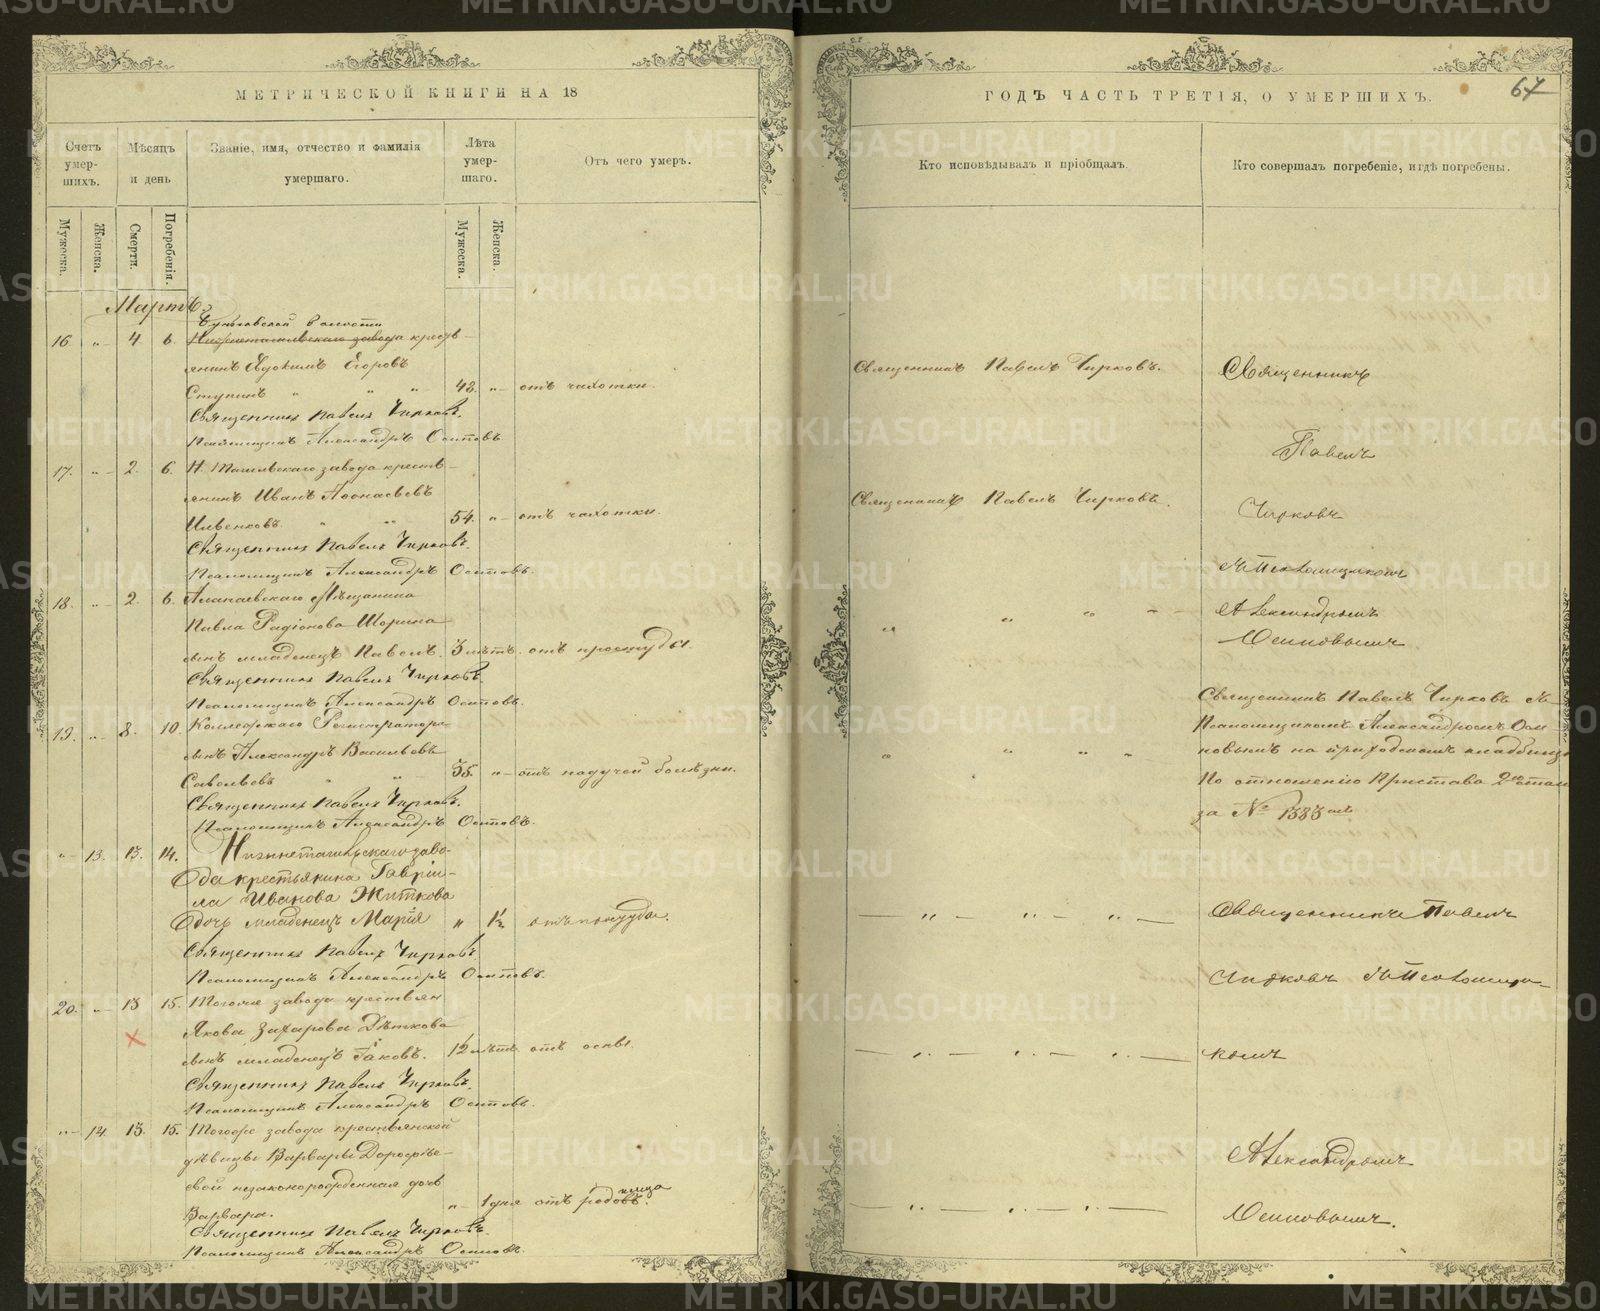 МЕТРИЧЕСКОЙ КНИГИ НА 18
Счетъ умер-шихъ.
Мѣсяцъ и день
Званіе, имя, отчество и фамилія умершаго.
Лѣта умер-шаго.
Отъ чего умеръ.
Мужеска.
Женска.
Смерти.
Погребенія.
Мужеска.
Женска.
Мартъ
волости
16 „ 4. 6. Нижнетагильскаго завода кресть-
янинъ Евдокимъ Егоровъ
Ступинъ „ „ „ 48. „ отъ чахотки.
Священникъ Павелъ Чирковъ.
Псаломщикъ Александръ Осиповъ
17. „ 2. 6. Н. Тагильскаго завода кресть-
янинъ Иванъ Аѳонасьевъ
„ „ 54. „ отъ чахотки.
Священникъ Павелъ Чирковъ.
Псаломщикъ Александръ Осиповъ.
18. „ 2. 6. Алапаевскаго Мѣщанина
Павла Радіонова Шорина
сынъ младенецъ Павелъ. 3 лѣтъ. отъ простуды.
Священникъ Павелъ Чирковъ
Псаломщикъ Александръ Осиповъ.
19. „ 8. 10. Коллежскаго Регистратора
сынъ Александръ Васильевъ
Савельевъ „ „ 35. „ отъ падучей болѣзни.
Священникъ Павелъ Чирковъ.
Псаломщикъ Александръ Осиповъ.
„ 13. 13. 14. Нижнетагильскаго заво-
да крестьянина Гавріи-
ла Иванова Житкова
дочь младенецъ Марія „ 1½
Священникъ Павелъ Чирковъ.
Псаломщикъ Александръ Осиповъ.
20. „ 13 15. Тогоже завода крестьян
Якова Захарова Дѣткова
сынъ младенецъ Іаковъ. отъ оспы.
Священникъ Павелъ Чирковъ.
Псаломщикъ Александръ Осиповъ.
„ 14. 13. 15. Тогоже завода крестьянской
дѣвицы Варвары Дороѳѣе-
вой незаконорожденная дочь
Варвара. „ 1 дня отъ
Священникъ Павелъ Чирковъ.
Псаломщикъ Александръ Осиповъ.
ГОДЪ ЧАСТЬ ТРЕТІЯ, О УМЕРШИХЪ.
67
Кто исповѣдывалъ и пріобщалъ.
Кто совершалъ погребеніе, и гдѣ погребены.
Священникъ Павелъ Чирковъ.
Священникъ
Павелъ
Священникъ Павелъ Чирковъ.
Чирковъ
съ Псаломщикомъ
„ „ „
Александромъ
Осиповымъ.
Священникъ Павелъ Чирковъ съ
Псаломщикомъ Александромъ Оси
„ „ „ „
повымъ на приходскомъ кладбищѣ
По отношенію Пристава 2го стан
за №
„ „ „
Священникъ Павелъ
Чирковъ съ Псаломщи-
„ „ „
комъ
Александромъ
„ „ „
Осиповымъ.
METRIKI.GASO-URAL.RU